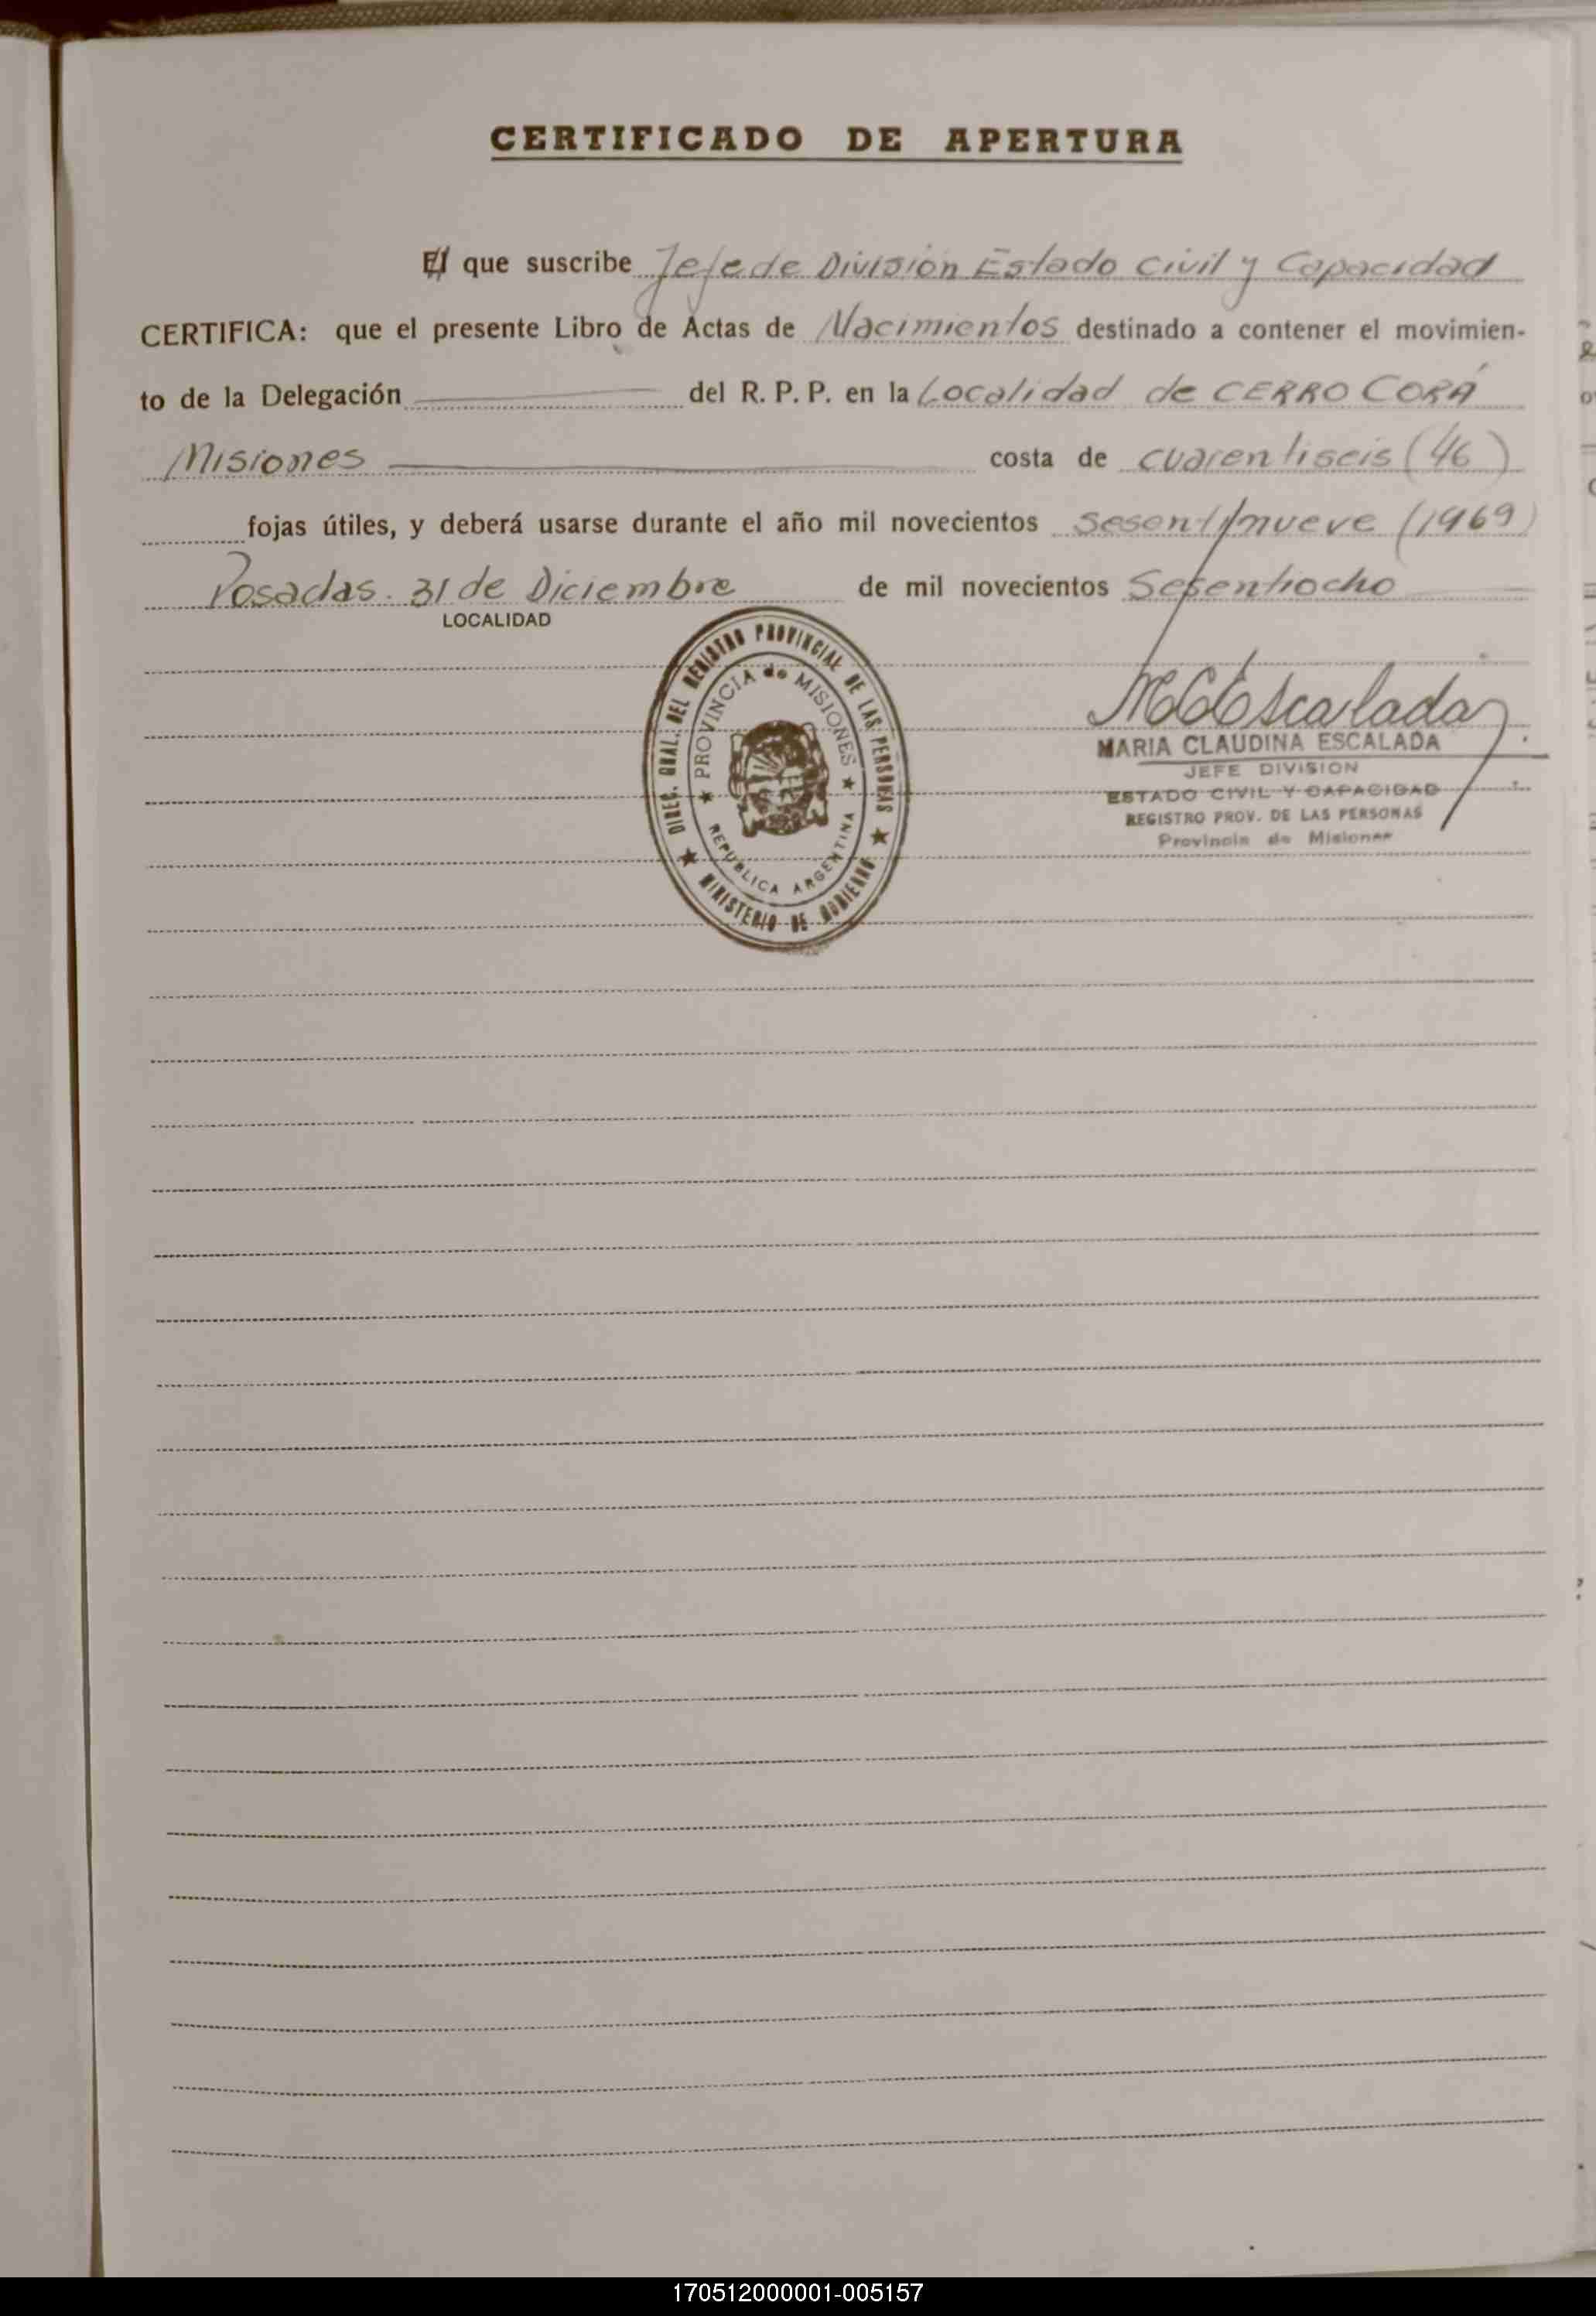 CERTIFICADO DE APERTURA
El que suscribe Jefe de División Estado Civil y Capacidad
CERTIFICA: que el presente Libro de Actas de Nacimientos destinado a contener el movimien-
to de la Delegación del R. P. P. en la Localidad de CERRO CORÁ
Misiones costa de cuarentiseis (46)
fojas útiles, y deberá usarse durante el año mil novecientos Sesentinueve (1969)
Posadas. 31 de Diciembre de mil novecientos Sesentiocho
LOCALIDAD
DIREC. GRAL. DEL REGISTRO PROVINCIAL DE LAS PERSONAS
PROVINCIA de MISIONES
REPUBLICA ARGENTINA
MINISTERIO DE GOBIERNO
MCEscalada
MARIA CLAUDINA ESCALADA
JEFE DIVISION
ESTADO CIVIL Y CAPACIDAD
REGISTRO PROV. DE LAS PERSONAS
Provincia de Misiones
170512000001-005157